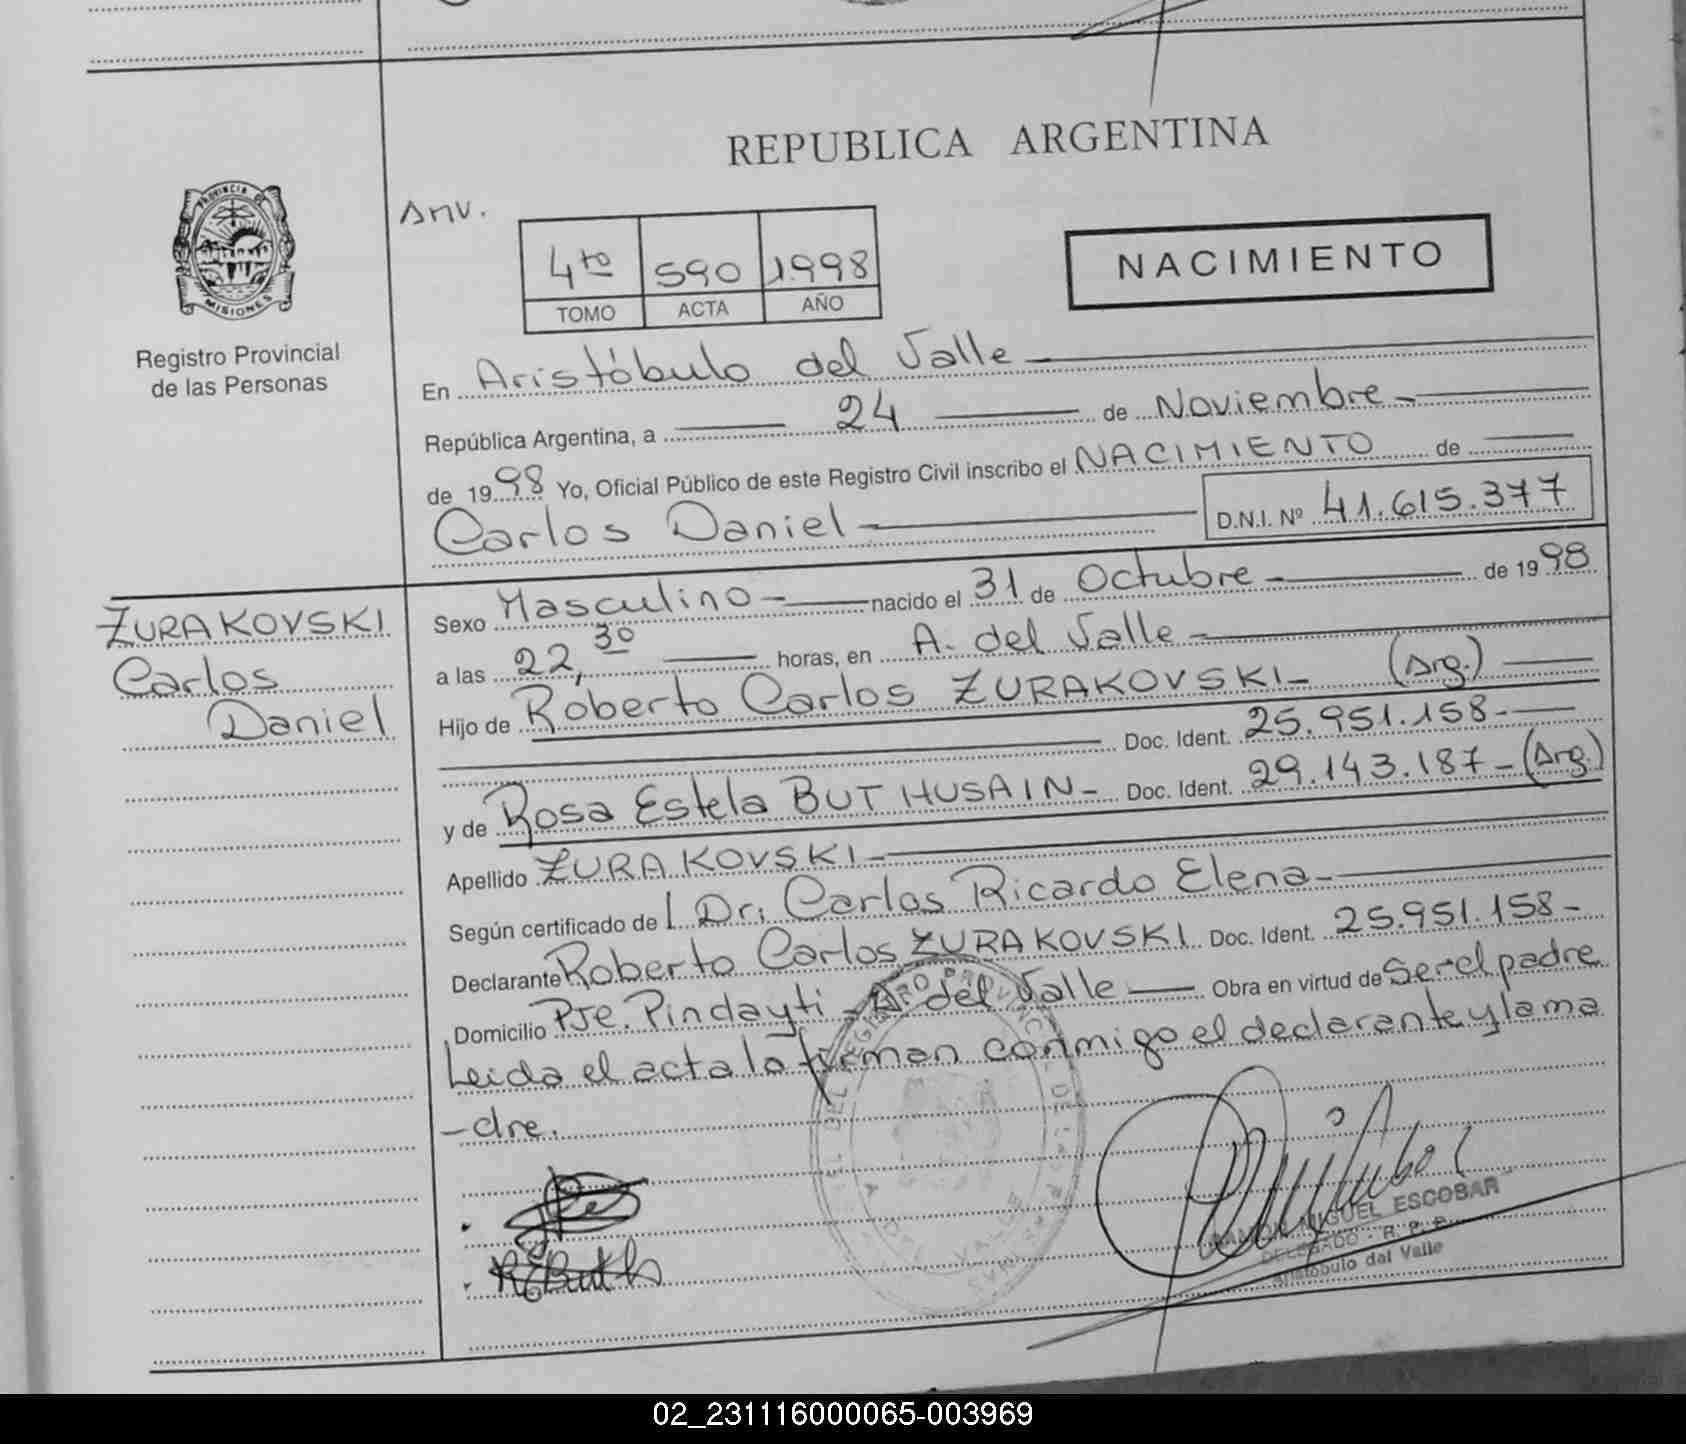 REPUBLICA ARGENTINA
PROVINCIA DE
MISIONES
Registro Provincial
de las Personas
Anv.
4to 590 1998
TOMO ACTA AÑO
NACIMIENTO
En Aristóbulo del Valle
República Argentina, a 24 de Noviembre
de 1998 Yo, Oficial Público de este Registro Civil inscribo el NACIMIENTO de
Carlos Daniel D.N.I. Nº 41.615.377
ZURAKOVSKI
Carlos
Daniel
Sexo Masculino nacido el 31 de Octubre de 1998
a las 22,30 horas, en A. del Valle
Hijo de Roberto Carlos ZURAKOVSKI (Arg.)
Doc. Ident. 25.951.158
y de Rosa Estela BUT HUSAIN Doc. Ident. 29.143.187 (Arg.)
Apellido ZURAKOVSKI
Según certificado del Dr. Carlos Ricardo Elena
Declarante Roberto Carlos ZURAKOVSKI Doc. Ident. 25.951.158
Domicilio Pje. Pindayti A. del Valle Obra en virtud de Ser el padre
Leida el acta la firman conmigo el declarante y la ma
-dre.
RAMON MIGUEL ESCOBAR
DELEGADO - R. P. P.
Aristóbulo del Valle
02_231116000065-003969